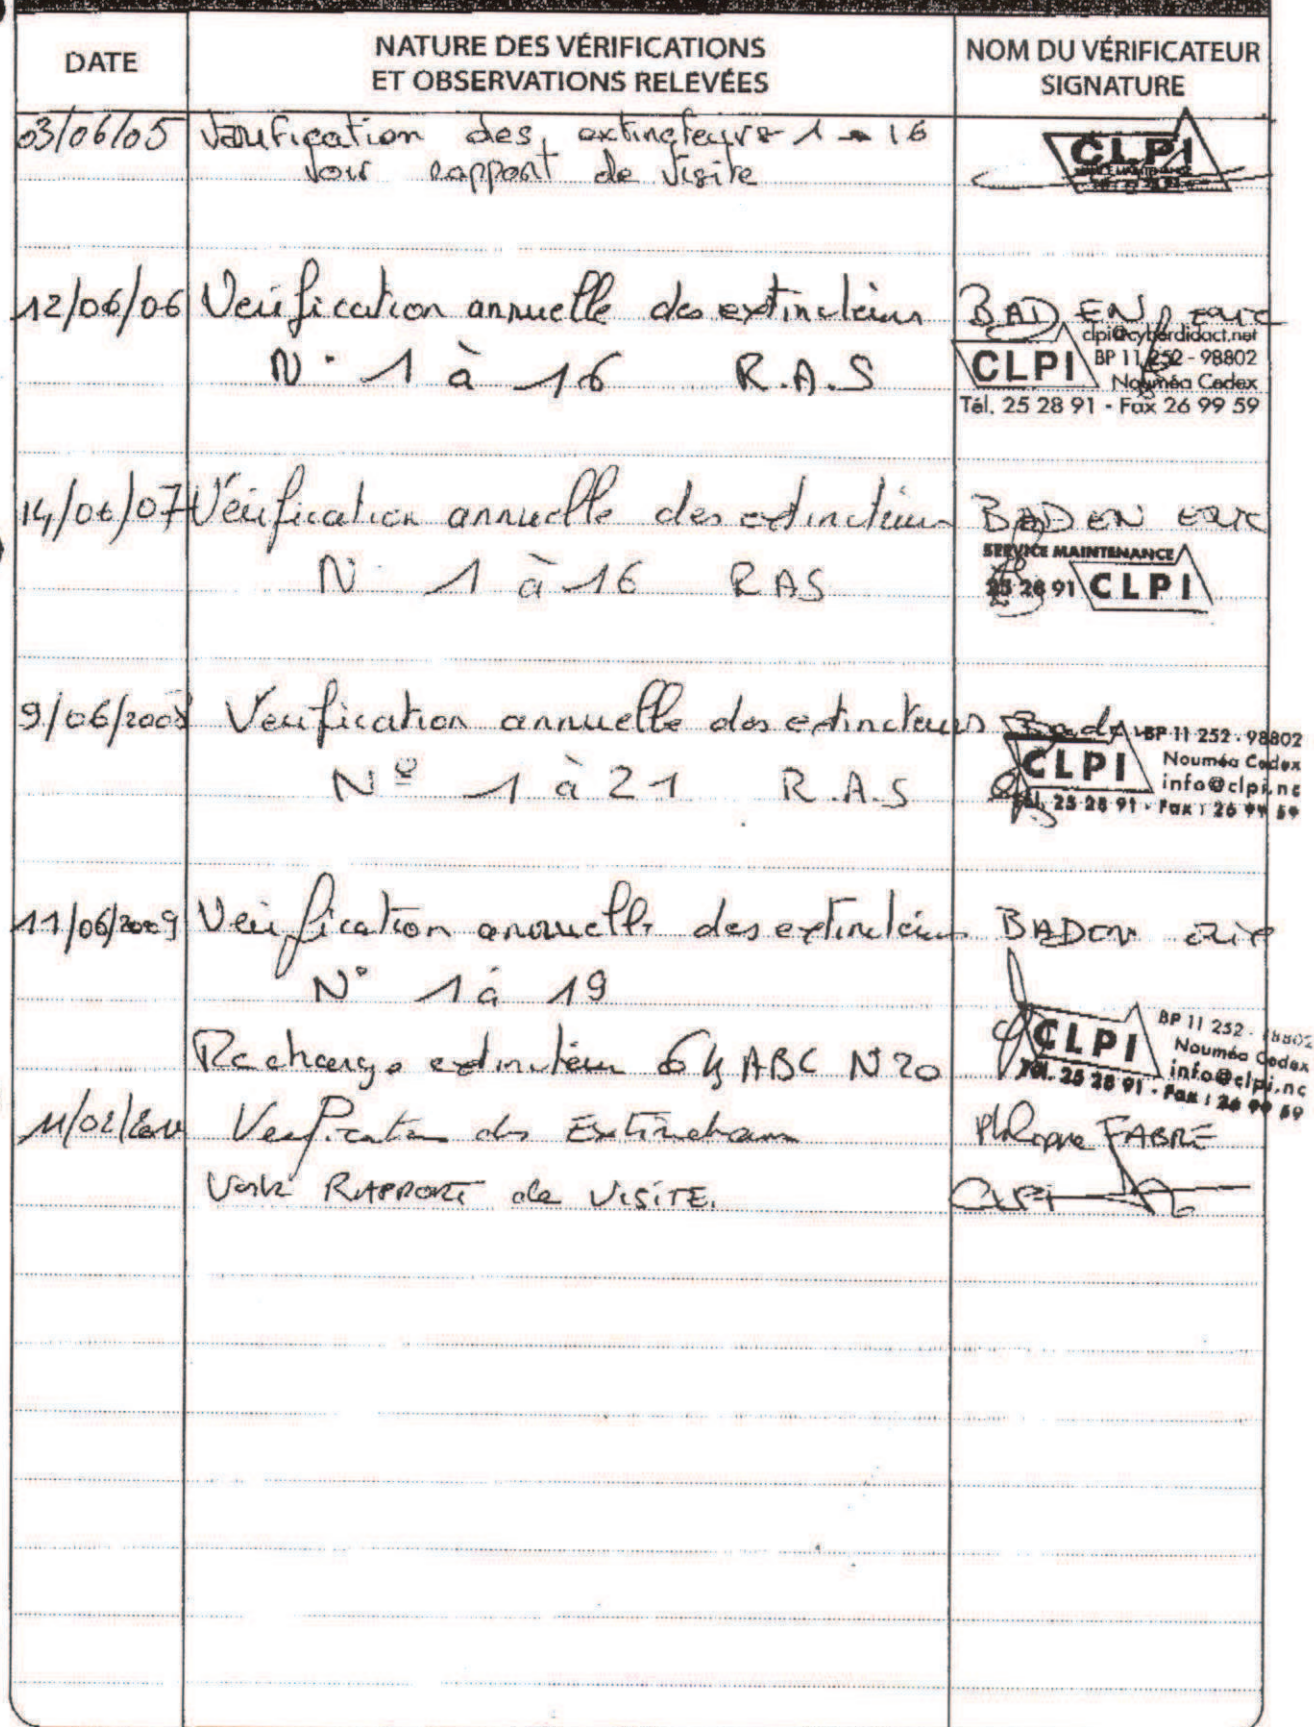 DATE
NATURE DES VÉRIFICATIONS
ET OBSERVATIONS RELEVÉES
NOM DU VÉRIFICATEUR
SIGNATURE
03/06/05 Vérification des extincteurs 1 → 16
Voir rapport de visite
CLPI
12/06/06 Vérification annuelle des extincteurs
N° 1 à 16 R.A.S
BADEN Eric
clpi@cyberdidact.net
CLPI BP 11 252 - 98802
Nouméa Cedex
Tél. 25 28 91 - Fax 26 99 59
14/06/07 Vérification annuelle des extincteurs
N° 1 à 16 RAS
BADEN ERIC
SERVICE MAINTENANCE
25 28 91 CLPI
9/06/2008 Vérification annuelle des extincteurs
N° 1 à 21 R.A.S
Baden
BP 11 252 - 98802
CLPI Nouméa Cedex
info@clpi.nc
Tél. 25 28 91 - Fax : 26 99 59
11/06/2009 Vérification annuelle des extincteurs
N° 1 à 19
Recharge extincteur 6 kg ABC N° 20
BADEN Eric
BP 11 252 - 98802
CLPI Nouméa Cedex
info@clpi.nc
Tél. 25 28 91 - Fax : 26 99 59
11/02/2010 Verification des Extincteurs
Voir RAPPORT de VISITE.
Philippe FABRE
CLPI